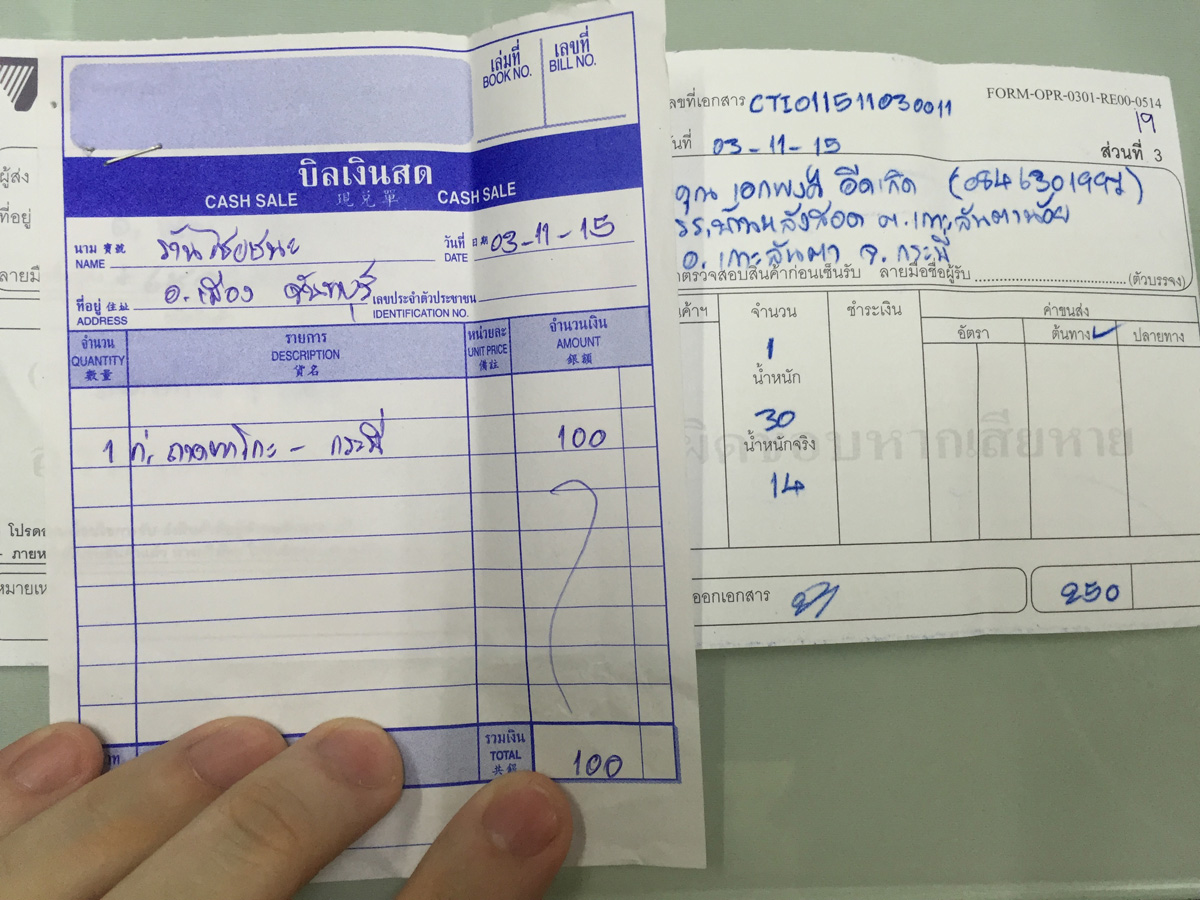 เล่มที่
BOOK NO.
เลขที่
BILL NO.
บิลเงินสด
CASH SALE 現兌單 CASH SALE
นาม 寶號
NAME
ร้านไชยชนะ
วันที่ 日期
DATE
03-11-15
ที่อยู่ 住址
ADDRESS
อ.เมือง จันทบุรี
เลขประจำตัวประชาชน
IDENTIFICATION NO.
จำนวน
QUANTITY
數量
รายการ
DESCRIPTION
貨名
หน่วยละ
UNIT PRICE
備註
จำนวนเงิน
AMOUNT
銀額
1 ก่. - กระบี่ 100
รวมเงิน
TOTAL
100
ผู้ส่ง
ที่อยู่
ลายมือ
โปรด
ลขที่เอกสาร CTI011511030011
FORM-OPR-0301-RE00-0514
19
ันที่ 03-11-15
ส่วนที่ 3
คุณ เอกพงศ์ อีดเกิด
รร.บ้านหลังสอด ต.เกาะลันตาน้อย
อ.เกาะลันตา จ.กระบี่
ตรวจสอบสินค้าก่อนเซ็นรับ ลายมือชื่อผู้รับ (ตัวบรรจง)
นค้าฯ
จำนวน
ชำระเงิน
ค่าขนส่ง
อัตรา
ต้นทาง ✓
ปลายทาง
1
น้ำหนัก
30
น้ำหนักจริง
14
ผิดชอบหากเสียหาย
ออกเอกสาร
250